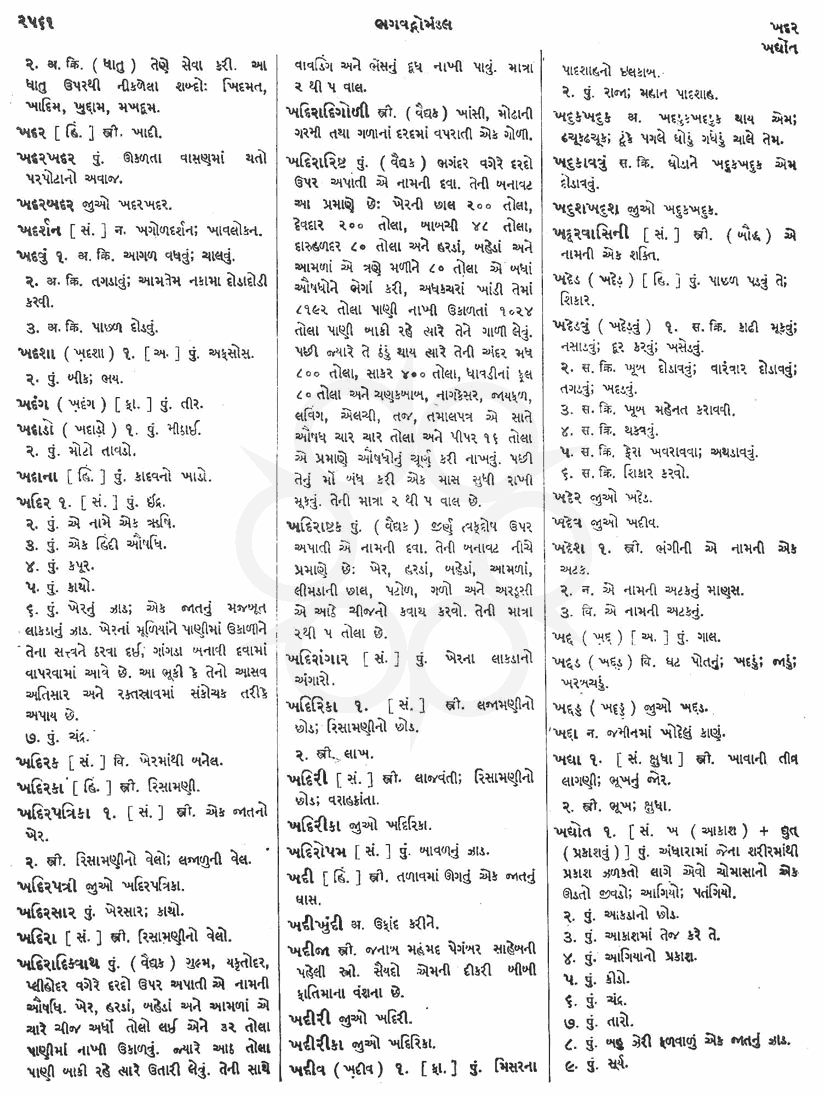 ૨૫૬૧
ભગવદ્ગોમંડલ
ખદ્દર
ખદ્યોત
૨. અ. ક્રિ. ( ધાતુ ) તેણે સેવા કરી. આ
ધાતુ ઉપરથી નીકળેલા શબ્દો: ખિદમત,
ખાદિમ, ખુદ્દામ, મખદૂમ.
ખદર [ હિં. ] સ્ત્રી. ખાદી.
ખદરખદર પું. ઊકળતા વાસણમાં થતો
પરપોટાનો અવાજ.
ખદરબદર જુઓ ખદરખદર.
ખદર્શન [ સં. ] ન. ખગોળદર્શન; ખાવલોકન.
ખદવું ૧. અ. ક્રિ. આગળ વધવું; ચાલવું.
૨. અ. ક્રિ. તગડાવું; આમતેમ નકામા દોડાદોડી
કરવી.
૩. અ. ક્રિ. પાછળ દોડવું.
ખદશા ( ખ઼દશા ) ૧. [ અ. ] પું. અફસોસ.
૨. પું. બીક; ભય.
ખદંગ ( ખ઼દંગ ) [ ફા. ] પું. તીર.
ખદાડો ( ખદાડ઼ો ) ૧. પું. મીઠાઈ.
૨. પું. મોટો તાવડો.
ખદાના [ હિં. ] પું. કાદવનો ખાડો.
ખદિર ૧. [ સં. ] પું. ઇંદ્ર.
૨. પું. એ નામે એક ઋષિ.
૩. પું. એક હિંદી ઔષધિ.
૪. પું. કપૂર.
૫. પું. કાથો.
૬. પું. ખેરનું ઝાડ; એક જાતનું મજબૂત
લાકડાનું ઝાડ. ખેરનાં મૂળિયાંને પાણીમાં ઉકાળીને
તેના સત્ત્વને ઠરવા દઈ, ગાંગડા બનાવી દવામાં
વાપરવામાં આવે છે. આ ભૂકી કે તેનો આસવ
અતિસાર અને રક્તસ્રાવમાં સંકોચક તરીકે
અપાય છે.
૭. પું. ચંદ્ર.
ખદિરક [ સં. ] વિ. ખેરમાંથી બનેલ.
ખદિરકા [ હિં. ] સ્ત્રી. રિસામણી.
ખદિરપત્રિકા ૧. [ સં. ] સ્ત્રી. એક જાતનો
ખેર.
૨. સ્ત્રી. રિસામણીનો વેલો; લજાળુની વેલ.
ખદિરપત્રી જુઓ ખદિરપત્રિકા.
ખદિરસાર પું. ખેરસાર; કાથો.
ખદિરા [ સં. ] સ્ત્રી. રિસામણીનો વેલો.
ખદિરાદિક્વાથ પું. ( વૈદ્યક ) ગુલ્મ, યકૃતોદર,
પ્લીહોદર વગેરે દરદો ઉપર અપાતી એ નામની
ઔષધિ. ખેર, હરડાં, બહેડાં અને આમળાં એ
ચારે ચીજ અર્ધો તોલો લઈ એને ૩૨ તોલા
પાણીમાં નાખી ઉકાળવું. જ્યારે આઠ તોલા
પાણી બાકી રહે ત્યારે ઉતારી લેવું. તેની સાથે
વાવડિંગ અને ભેંસનું દૂધ નાખી પાવું. માત્રા
૨ થી ૫ વાલ.
ખદિરાદિગોળી સ્ત્રી. ( વૈદ્યક ) ખાંસી, મોઢાની
ગરમી તથા ગળાનાં દરદમાં વપરાતી એક ગોળી.
ખદિરારિષ્ટ પું. ( વૈદ્યક ) ભગંદર વગેરે દરદો
ઉપર અપાતી એ નામની દવા. તેની બનાવટ
આ પ્રમાણે છે: ખેરની છાલ ૨૦૦ તોલા,
દેવદાર ૨૦૦ તોલા, બાબચી ૪૮ તોલા,
દારુહળદર ૮૦ તોલા અને હરડાં, બહેડાં અને
આમળાં એ ત્રણે મળીને ૮૦ તોલા એ બધાં
ઔષધોને ભેગાં કરી, અધકચરાં ખાંડી તેમાં
૮૧૯૨ તોલા પાણી નાખી ઉકાળતાં ૧૦૨૪
તોલા પાણી બાકી રહે ત્યારે તેને ગાળી લેવું.
પછી જ્યારે તે ઠંડું થાય ત્યારે તેની અંદર મધ
૮૦૦ તોલા, સાકર ૪૦૦ તોલા, ધાવડીનાં ફૂલ
૮૦ તોલા અને ચણકબાબ, નાગકેસર, જાયફળ,
લવિંગ, એલચી, તજ, તમાલપત્ર એ સાતે
ઔષધ ચાર ચાર તોલા અને પીપર ૧૬ તોલા
એ પ્રમાણે ઔષધોનું ચૂર્ણ કરી નાખવું. પછી
તેનું મોં બંધ કરી એક માસ સુધી રાખી
મૂકવું. તેની માત્રા ૨ થી ૫ વાલ છે.
ખદિરાષ્ટક પું. ( વૈદ્યક ) જીર્ણ ત્વક્દોષ ઉપર
અપાતી એ નામની દવા. તેની બનાવટ નીચે
પ્રમાણે છે: ખેર, હરડાં, બહેડાં, આમળાં,
લીમડાની છાલ, પટોળ, ગળો અને અરડૂસી
એ આઠે ચીજનો ક્વાથ કરવો. તેની માત્રા
૨થી ૫ તોલા છે.
ખદિરાંગાર [ સં. ] પું. ખેરના લાકડાનો
અંગારો.
ખદિરિકા ૧. [ સં. ] સ્ત્રી. લજામણીનો
છોડ; રિસામણીનો છોડ.
૨. સ્ત્રી. લાખ.
ખદિરી [ સં. ] સ્ત્રી. લાજવંતી; રિસામણીનો
છોડ; વરાહક્રાંતા.
ખદિરીકા જુઓ ખદિરિકા.
ખદિરોપમ [ સં. ] પું. બાવળનું ઝાડ.
ખદી [ હિં. ] સ્ત્રી. તળાવમાં ઊગતું એક જાતનું
ઘાસ.
ખદીખુંદી અ. ઉફાંદ કરીને.
ખદીજા સ્ત્રી. જનાબ મહંમદ પેગંબર સાહેબની
પહેલી સ્ત્રી. સૈયદો એમની દીકરી બીબી
ફાતિમાના વંશના છે.
ખદીરી જુઓ ખદિરી.
ખદીરીકા જુઓ ખદિરિકા.
ખદીવ ( ખ઼દીવ ) ૧. [ ફા. ] પું. મિસરના
પાદશાહનો ઇલકાબ.
૨. પું. રાજા; મહાન પાદશાહ.
ખદુકખદુક અ. ખદુકખદુક થાય એમ;
ઢચૂકઢચૂક; ટૂંકે પગલે ઘોડું ગધેડું ચાલે તેમ.
ખદુકાવવું સ. ક્રિ. ઘોડાને ખદુકખદુક એમ
દોડાવવું.
ખદુશખદુશ જુઓ ખદુકખદુક.
ખદૂરવાસિની [ સં. ] સ્ત્રી. ( બૌદ્ધ ) એ
નામની એક શક્તિ.
ખદેડ ( ખદેડ઼ ) [ હિ. ] પું. પાછળ પડવું તે;
શિકાર.
ખદેડવું ( ખદેડ઼વું ) ૧. સ. ક્રિ. કાઢી મૂકવું;
નસાડવું; દૂર કરવું; ખસેડવું.
૨. સ. ક્રિ. ખૂબ દોડાવવું; વારંવાર દોડાવવું;
તગડવું; ખદડવું.
૩. સ. ક્રિ. ખૂબ મહેનત કરાવવી.
૪. સ. ક્રિ. થકવવું.
૫. સ. ક્રિ. ફેરા ખવરાવવા; અથડાવવું.
૬. સ. ક્રિ. શિકાર કરવો.
ખદેર જુઓ ખદેડ.
ખદેવ જુઓ ખદીવ.
ખદેશ ૧. સ્ત્રી. ભંગીની એ નામની એક
અટક.
૨. ન. એ નામની અટકનું માણસ.
૩. વિ. એ નામની અટકનું.
ખદ્દ ( ખ઼દ્દ ) [ અ. ] પું. ગાલ.
ખદ્દડ ( ખદ્દડ઼ ) વિ. ઘટ પોતનું; ખદડું; જાડું;
ખરબચડું.
ખદ્દડુ ( ખદ્દડ઼ુ ) જુઓ ખદ્દડ.
ખદ્દા ન. જમીનમાં ખોદેલું કાણું.
ખદ્યા ૧. [ સં. ક્ષુધા ] સ્ત્રી. ખાવાની તીવ્ર
લાગણી; ભૂખનું જોર.
૨. સ્ત્રી. ભૂખ; ક્ષુધા.
ખદ્યોત ૧. [ સં. ખ ( આકાશ ) + દ્યુત
( પ્રકાશવું ) ] પું. અંધારામાં જેના શરીરમાંથી
પ્રકાશ ઝળકતો લાગે એવો ચોમાસાનો એક
ઊડતો જીવડો; આગિયો; પતંગિયો.
૨. પું. આકડાનો છોડ.
૩. પું. આકાશમાં તેજ કરે તે.
૪. પું. આગિયાનો પ્રકાશ.
૫. પું. કીડો.
૬. પું. ચંદ્ર.
૭. પું. તારો.
૮. પું. બહુ ઝેરી ફળવાળું એક જાતનું ઝાડ.
૯. પું. સૂર્ય.